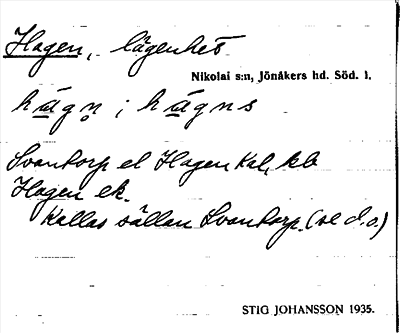 Hagen, lägenhet
Nikolai s:n, Jönåkers hd. Söd. l.
hágn̥ ; hágns
Svantorp el Hagen Kal, kb
Hagen ek.
Kallas sällan Svantorp. (se d.o.)
STIG JOHANSSON 1935.